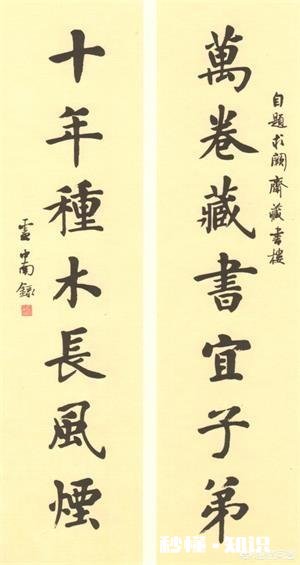 自題求闕齋藏書樓
萬卷藏書宜子弟
十年種木長風煙
雲中南錄
秒懂·知识